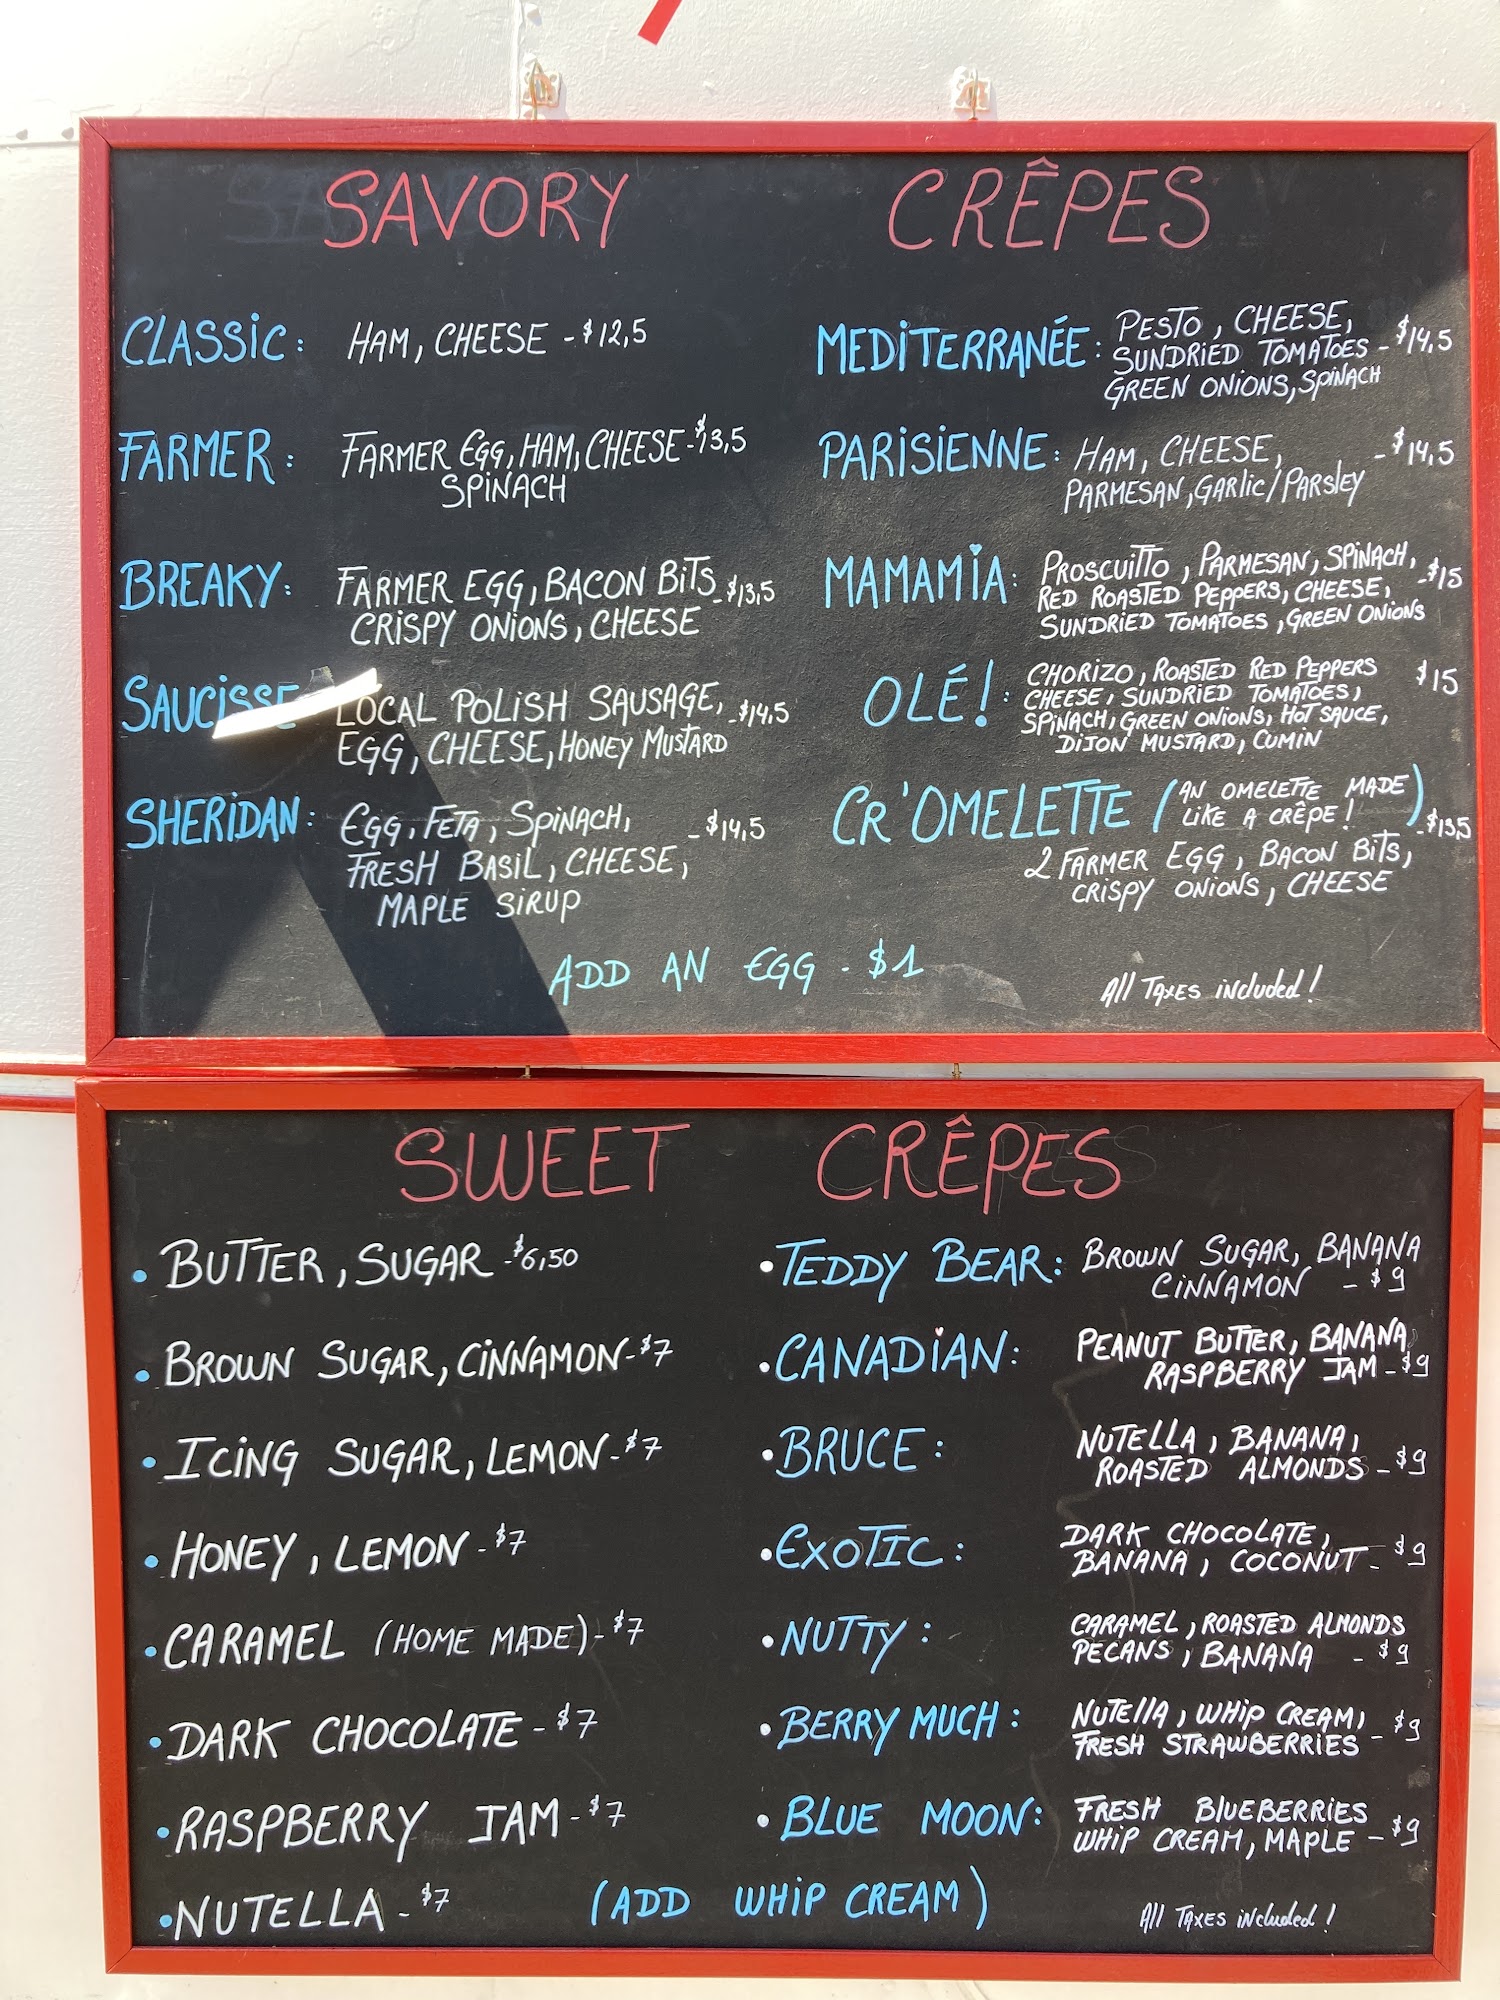 SAVORY CRÊPES
CLASSIC: HAM, CHEESE - $12,5
FARMER: FARMER EGG, HAM, CHEESE - $13,5
SPINACH
BREAKY: FARMER EGG, BACON BITS - $13,5
CRISPY ONIONS, CHEESE
SAUCISSE LOCAL POLISH SAUSAGE, - $14,5
EGG, CHEESE, HONEY MUSTARD
SHERIDAN: EGG, FETA, SPINACH, - $14,5
FRESH BASIL, CHEESE,
MAPLE SIRUP
MEDITERRANÉE: PESTO, CHEESE,
SUNDRIED TOMATOES - $14,5
GREEN ONIONS, SPINACH
PARISIENNE: HAM, CHEESE, - $14,5
PARMESAN, GARLIC/PARSLEY
MAMAMIA: PROSCUITTO, PARMESAN, SPINACH,
RED ROASTED PEPPERS, CHEESE, - $15
SUNDRIED TOMATOES, GREEN ONIONS
OLÉ!: CHORIZO, ROASTED RED PEPPERS $15
CHEESE, SUNDRIED TOMATOES,
SPINACH, GREEN ONIONS, HOT SAUCE,
DIJON MUSTARD, CUMIN
CR'OMELETTE (AN OMELETTE MADE
LIKE A CRÊPE!) - $13,5
2 FARMER EGG, BACON BITS,
CRISPY ONIONS, CHEESE
ADD AN EGG - $1
All TAXES included!
SWEET CRÊPES
• BUTTER, SUGAR - $6,50
• BROWN SUGAR, CINNAMON - $7
• ICING SUGAR, LEMON - $7
• HONEY, LEMON - $7
• CARAMEL (HOME MADE) - $7
• DARK CHOCOLATE - $7
• RASPBERRY JAM - $7
• NUTELLA - $7
(ADD WHIP CREAM)
• TEDDY BEAR: BROWN SUGAR, BANANA
CINNAMON - $9
• CANADIAN: PEANUT BUTTER, BANANA
RASPBERRY JAM - $9
• BRUCE: NUTELLA, BANANA,
ROASTED ALMONDS - $9
• EXOTIC: DARK CHOCOLATE,
BANANA, COCONUT - $9
• NUTTY: CARAMEL, ROASTED ALMONDS
PECANS, BANANA - $9
• BERRY MUCH: NUTELLA, WHIP CREAM,
FRESH STRAWBERRIES - $9
• BLUE MOON: FRESH BLUEBERRIES
WHIP CREAM, MAPLE - $9
All TAXES included!